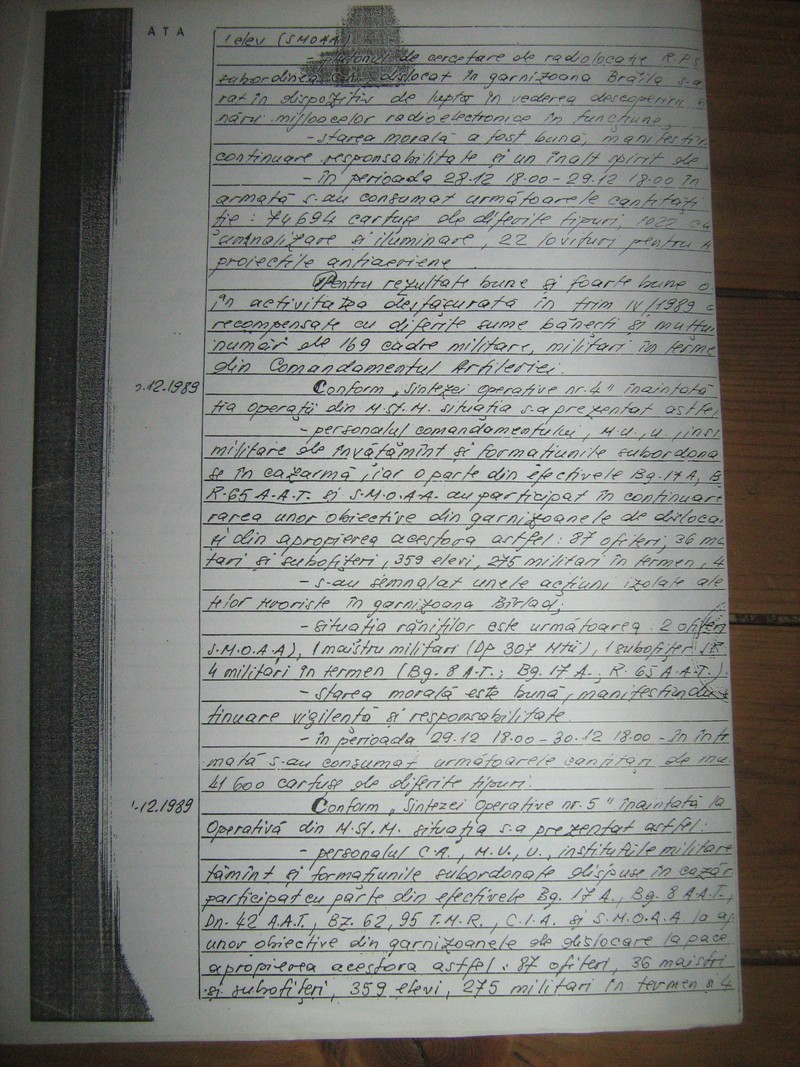 ATA
1 elev (SMOAA)
- plutonul de cercetare de radiolocație R.65
subordinea dislocat în garnizoana Brăila s-a
rat în dispozitiv de luptă în vederea descoperirii
mijloacelor radioelectronice în funcțiune,
- starea morală a fost bună, manifestîn
continuare responsabilitate și un înalt spirit de
- în perioada 28.12 18.00 - 29.12 18.00 în
armată s-au consumat următoarele cantități
ție: 74 694 cartușe de diferite tipuri, 1022 ca
semnalizare și iluminare, 22 lovituri pentru
proiectile antiaeriene
Pentru rezultate bune și foarte bune o
în activitatea desfășurată în trim IV/1989
recompensate cu diferite sume bănești și mulțu
număr de 169 cadre militare, militari în terme
din Comandamentul Artileriei.
.12.1989 Conform „Sintezei Operative nr. 4" înaintată
ția operații din M.St.M. situația s-a prezentat astfel
- personalul comandamentului, M.U., u., insti
militare de învățămînt și formațiunile subordona
se în cazarmă, iar o parte din efectivele Bg. 17 A, B
R-65 A.A.T. și S.M.O.A.A. au participat în continuare
rarea unor obiective din garnizoanele de disloca
și din apropierea acestora astfel: 87 ofițeri, 36 ma
tari și subofițeri, 359 elevi, 275 militari în termen, 4
- s-au semnalat unele acțiuni izolate ale
telor teroriste în garnizoana Bîrlad;
- situația răniților este următoarea: 2 ofițeri
S.M.O.A.A), 1 maistru militari (Dp 307 Mtū), 1 subofițer
4 militari în termen (Bg. 8 A.T.; Bg. 17 A.; R. 65 A.A.T.)
- starea morală este bună, manifestîndu-
tinuare vigilență și responsabilitate.
- în perioada 29.12 18.00 - 30.12 18.00 - în într
mată s-au consumat următoarele cantități de mu
41 600 cartușe de diferite tipuri.
.12.1989 Conform „Sintezei Operative nr. 5" înaintată la
Operativă din M.St.M. situația s-a prezentat astfel:
- personalul C.A., M.U., U., instituțiile militare
tămînt și formațiunile subordonate dispuse în cazăr
participat cu părte din efectivele Bg. 17 A., Bg. 8 A.A.T.,
Dn. 42 A.A.T., Bz. 62, 95 T.M.R., C.I.A. și S.M.O.A.A la ap
unor obiective din garnizoanele de dislocare la pace
apropierea acestora astfel: 87 ofițeri, 36 maiștri
și subofițeri, 359 elevi, 275 militari în termen și 4